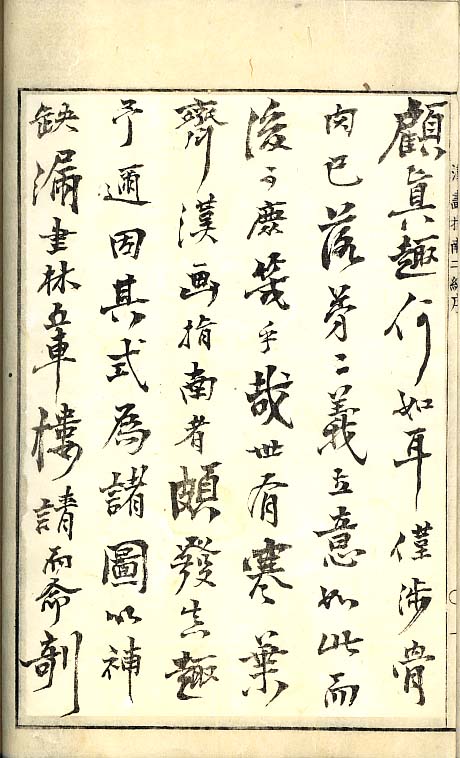 漢畫指南二編序
顧眞趣何如耳僅涉骨
肉已落第二義立意如此而
後可庶幾乎哉世有寒葉
齋漢画指南者頗發真趣
予邇因其式為諸圖以補
缺漏書林五車樓請而命剞